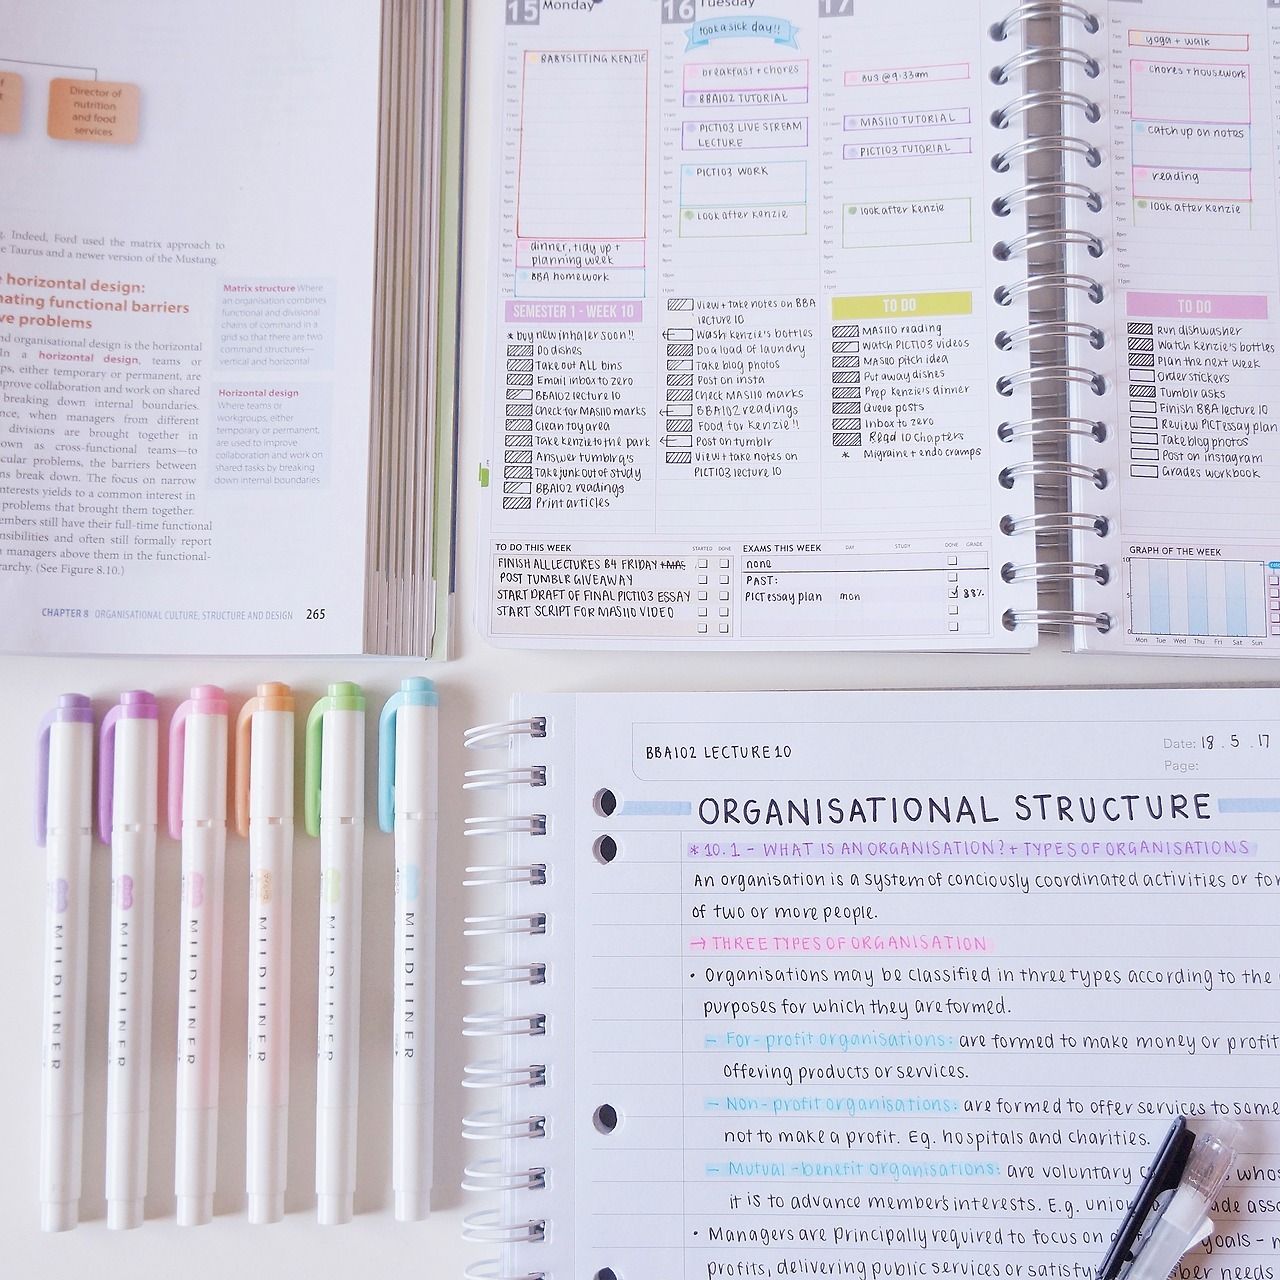 Director of
nutrition
and food
services
g. Indeed, Ford used the matrix approach to
e Taurus and a newer version of the Mustang.
horizontal design:
nating functional barriers
ve problems
nd organisational design is the horizontal
In a horizontal design, teams or
ps, either temporary or permanent, are
prove collaboration and work on shared
breaking down internal boundaries.
nce, when managers from different
divisions are brought together in
own as cross-functional teams—to
cular problems, the barriers between
ns break down. The focus on narrow
nterests yields to a common interest in
problems that brought them together.
embers still have their full-time functional
nsibilities and often still formally report
managers above them in the functional-
rarchy. (See Figure 8.10.)
Matrix structure Where
an organisation combines
functional and divisional
chains of command in a
grid so that there are two
command structures—
vertical and horizontal
Horizontal design
Where teams or
workgroups, either
temporary or permanent,
are used to improve
collaboration and work on
shared tasks by breaking
down internal boundaries
CHAPTER 8 ORGANISATIONAL CULTURE, STRUCTURE AND DESIGN 265
15 Monday
BABYSITTING KENZIE
dinner, tidy up +
planning week
BBA homework
SEMESTER 1 - WEEK 10
* buy new inhaler soon!!
Do dishes
Take out ALL bins
Email inbox to zero
BBA102 lecture 10
Check for MAS110 marks
Clean toy area
Take kenzie to the park
Answer tumblr q's
Take junk out of study
BBA102 readings
Print articles
16 Tuesday
took a sick day!!
breakfast + chores
BBA102 TUTORIAL
PICT103 LIVE STREAM
LECTURE
PICT103 WORK
Look after Kenzie
View + take notes on BBA
lecture 10
Wash Kenzie's bottles
Do a load of laundry
Take blog photos
Post on insta
Check MAS110 marks
BBA102 readings
Food for Kenzie!!
Post on tumblr
View + take notes on
PICT103 lecture 10
17
BUS @ 9.33am
MAS110 TUTORIAL
PICT103 TUTORIAL
look after Kenzie
TO DO
MAS110 reading
Watch PICT103 videos
MAS110 pitch idea
Put away dishes
Prep Kenzie's dinner
Queue posts
Inbox to zero
Read 10 Chapters
* Migraine + endo cramps
TO DO THIS WEEK STARTED DONE
FINISH ALL LECTURES B4 FRIDAY
POST TUMBLR GIVEAWAY
START DRAFT OF FINAL PICT103 ESSAY
START SCRIPT FOR MAS110 VIDEO
EXAMS THIS WEEK DAY STUDY DONE GRADE
none
PAST:
PICT essay plan mon 88%
yoga + walk
chores + housework
catch up on notes
reading
look after Kenzie
TO DO
Run dishwasher
Watch Kenzie's bottles
Plan the next week
Order stickers
Tumblr asks
Finish BBA lecture 10
Review PICT essay plan
Take blog photos
Post on instagram
Grades workbook
GRAPH OF THE WEEK
10
5
0
Mon Tue Wed Thu Fri Sat Sun
MILDLINER
MILDLINER
MILDLINER
MILDLINER
MILDLINER
MILDLINER
BBA102 LECTURE 10
Date: 18 . 5 . 17
Page:
ORGANISATIONAL STRUCTURE
* 10.1 - WHAT IS AN ORGANISATION? + TYPES OF ORGANISATIONS
An organisation is a system of conciously coordinated activities or for
of two or more people.
→ THREE TYPES OF ORGANISATION
• Organisations may be classified in three types according to the
purposes for which they are formed.
- For-profit organisations: are formed to make money or profit
offering products or services.
- Non-profit organisations: are formed to offer services to some
not to make a profit. Eg. hospitals and charities.
- Mutual-benefit organisations: are voluntary whos
it is to advance member's interests. E.g. union ade asso
• Managers are principally required to focus on goals -
profits, delivering public services or satisfy ber needs